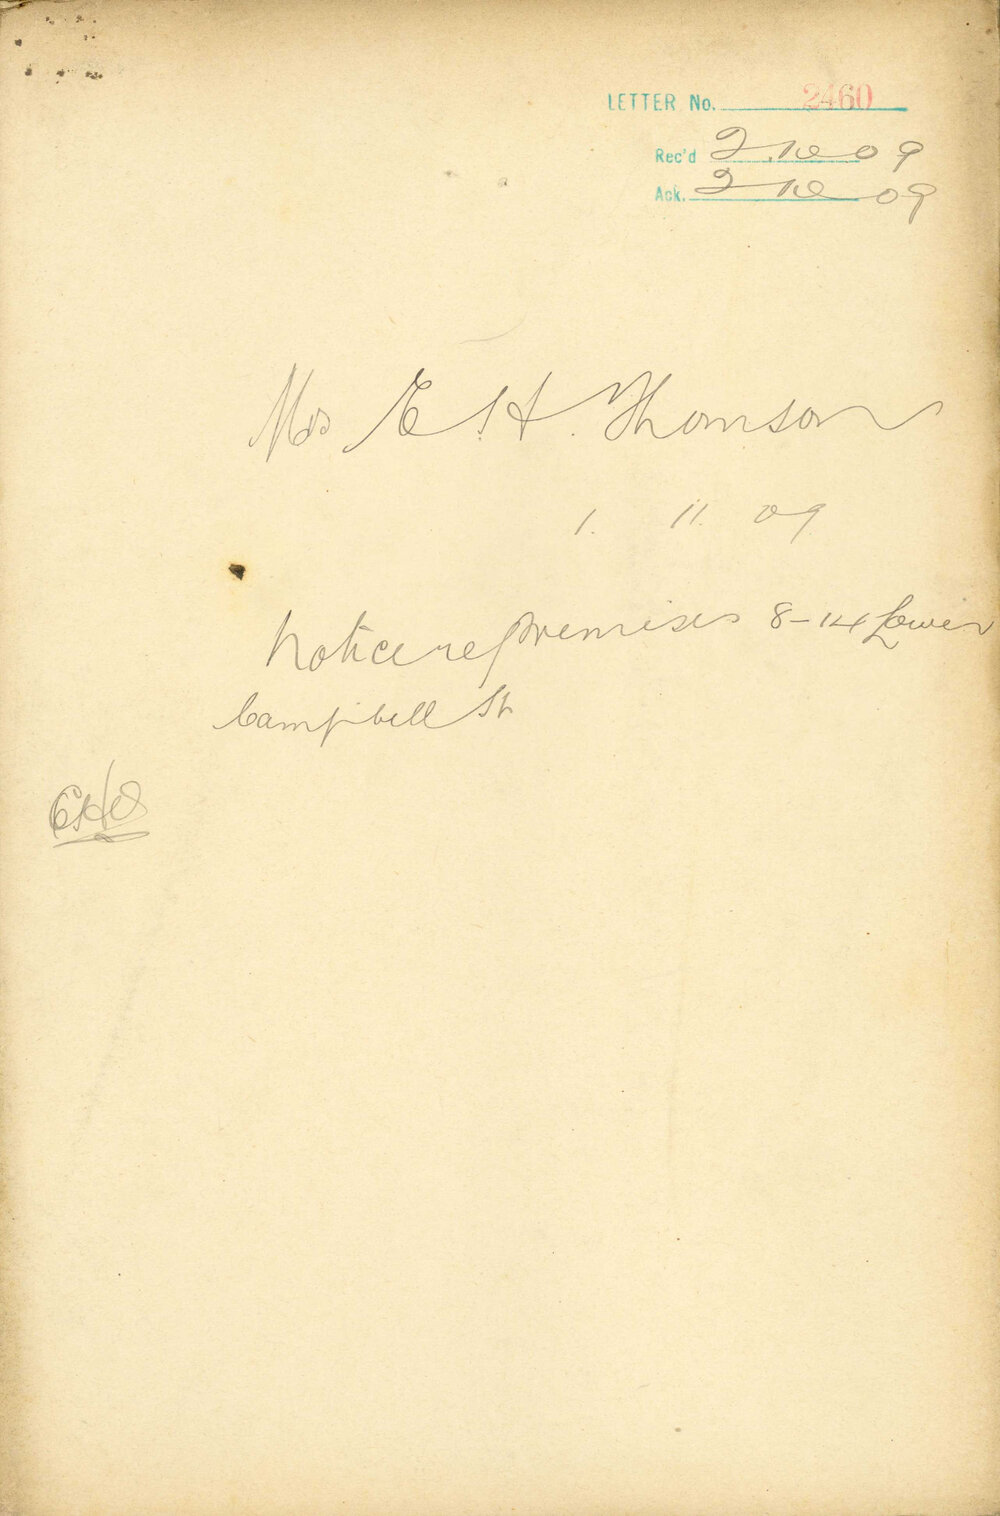 LETTER No. 2460
Rec'd 2 09
Ack. 2 09
Mrs E. H. Thomson
1. 11. 09
Notice re premises 8-14 Lower
Campbell St